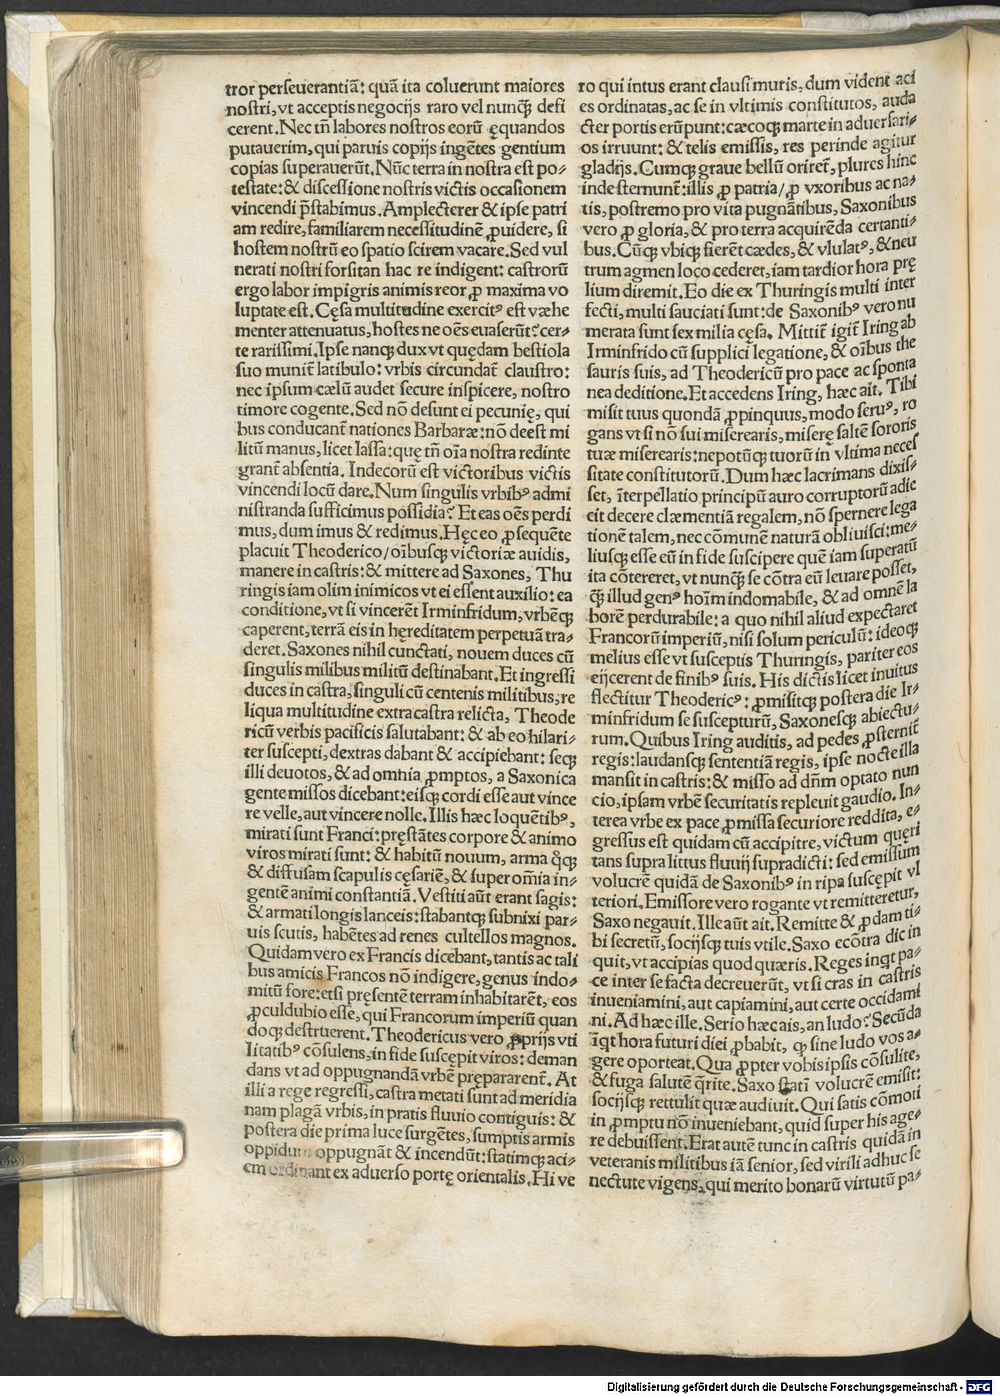 tror perseuerantiã: quã ita coluerunt maiores
nostri, vt acceptis negocijs raro vel nunꝗ̃ defi
cerent. Nec tñ labores nostros eorũ ęquandos
putauerim, qui paruis copijs ingẽtes gentium
copias superauerũt. Nũc terra in nostra est po⸗
testate: & discessione nostris victis occasionem
vincendi p̃stabimus. Amplecterer & ipse patri
am redire, familiarem necessitudinẽ ꝓuidere, si
hostem nostrũ eo spatio scirem vacare. Sed vul
nerati nostri forsitan hac re indigent: castrorũ
ergo labor impigris animis reor, ꝓ maxima vo
luptate est. Cęsa multitudine exercitꝰ est væhe
menter attenuatus, hostes ne oẽs euaserũt? cer⸗
te rarissimi. Ipse nanꝙ dux vt quędam bestiola
suo munit̃ latibulo: vrbis circundat̃ claustro:
nec ipsum cælũ audet secure inspicere, nostro
timore cogente. Sed nõ desunt ei pecunię, qui
bus conducant̃ nationes Barbaræ: nõ deest mi
litũ manus, licet lassa: quę tñ oĩa nostra redinte
grant̃ absentia. Indecorũ est victoribus victis
vincendi locũ dare. Num singulis vrbibꝰ admi
nistranda sufficimus possidia? Et eas oẽs perdi
mus, dum imus & redimus. Hęc eo ꝓsequẽte
placuit Theoderico/oĩbusꝙ victoriæ auidis,
manere in castris: & mittere ad Saxones, Thu
ringis iam olim inimicos vt ei essent auxilio: ea
conditione, vt si vincerẽt Irminfridum, vrbẽꝙ
caperent, terrã eis in hęreditatem perpetuã tra⸗
deret. Saxones nihil cunctati, nouem duces cũ
singulis milibus militũ destinabant. Et ingressi
duces in castra, singuli cũ centenis militibus, re
liqua multitudine extra castra relicta, Theode
ricũ verbis pacificis salutabant: & ab eo hilari⸗
ter suscepti, dextras dabant & accipiebant: seꝙ
illi deuotos, & ad omnia ꝓmptos, a Saxonica
gente missos dicebant: eisꝙ cordi esse aut vince
re velle, aut vincere nolle. Illis hæc loquẽtibꝰ,
mirati sunt Franci: pręstãtes corpore & animo
viros mirati sunt: & habitũ nouum, arma q̃ꝙ
& diffusam scapulis cęsariẽ, & super om̃ia in⸗
gentẽ animi constantiã. Vestiti aũt erant sagis:
& armati longis lanceis: stabantꝙ subnixi par⸗
uis scutis, habẽtes ad renes cultellos magnos.
Quidam vero ex Francis dicẽbant, tantis ac tali
bus amicis Francos nõ indigere, genus indo⸗
mitũ fore: etsi pręsentẽ terram inhabitarẽt, eos
ꝓculdubio esse, qui Francorum imperiũ quan
doꝙ destruerent. Theodericus vero ꝓprijs vti
litatibꝰ cõsulens, in fide suscępit viros: deman
dans vt ad oppugnandã vrbẽ prępararent̃. At
illi a rege regressi, castra metati sunt ad meridia
nam plagã vrbis, in pratis fluuio contiguis: &
postera die prima luce surgẽtes, sumptis armis
oppidum oppugnãt & incendũt: statimꝙ aci⸗
em ordinant ex aduerso portę orientalis. Hi ve
ro qui intus erant clausi muris, dum vident aci
es ordinatas, ac se in vltimis constitutos, auda
cter portis erũpunt: cæcoꝙ marte in aduersari⸗
os irruunt: & telis emissis, res perinde agitur
gladijs. Cumꝙ graue bellũ oriret̃, plures hinc
inde sternunt̃: illis ꝓ patria/ꝓ vxoribus ac na⸗
tis, postremo pro vita pugnãtibus, Saxonibus
vero ꝓ gloria, & pro terra acquirẽda certanti⸗
bus. Cũꝙ vbiꝙ fierẽt cædes, & vlulatꝰ, & neu
trum agmen loco cederet, iam tardior hora pрę
lium diremit. Eo die ex Thuringis multi inter
fecti, multi sauciati sunt: de Saxonibꝰ vero nu
merata sunt sex milia cęsa. Mittit̃ igit̃ Iring ab
Irminfrido cũ supplici legatione, & oĩbus the
sauris suis, ad Theodericũ pro pace ac sponta
nea deditione. Et accedens Iring, hæc ait. Tibi
misit tuus quondã ꝓpinquus, modo seruꝰ, ro
gans vt si nõ sui miserearis, miserę saltẽ sororis
tuæ miserearis: nepotũꝙ tuorũ in vltima neces
sitate constitutorũ. Dum hæc lacrimans dixis⸗
set, ĩterpellatio principũ auro corruptorũ adie
cit decere clæmentiã regalem, nõ spernere lega
tionẽ talem, nec cõmunẽ naturã obliuisci: me⸗
liusꝙ esse eũ in fide suscipere quẽ iam superatũ
ita cõtereret, vt nunꝗ̃ se cõtra eũ leuare posset,
ꝗ̃ illud genꝰ hoĩm indomabile, & ad omnẽ la
borẽ perdurabile: a quo nihil aliud expectaret
Francorũ imperiũ, nisi solum periculũ: ideoꝙ
melius esse vt susceptis Thuringis, pariter eos
eijcerent de finibꝰ suis. His dictis licet inuitus
flectitur Theodericꝰ: ꝓmisitꝙ postera die Ir⸗
minfridum se suscepturũ, Saxonesꝙ abiectu⸗
rum. Quibus Iring auditis, ad pedes ꝓsternit̃
regis: laudansꝙ sententiã regis, ipse nocte illa
mansit in castris: & misso ad dñm optato nun
cio, ipsam vrbẽ securitatis repleuit gaudio. In⸗
terea vrbe ex pace ꝓmissa securiore reddita, e⸗
gressus est quidam cũ accipitre, victum quęri
tans supra littus fluuij supradicti: sed emissum
volucrẽ quidã de Saxonibꝰ in ripa suscępit vl
teriori. Emissore vero rogante vt remitteretur,
Saxo negauit. Ille aũt ait. Remitte & ꝓdam ti⸗
bi secretũ, socijsꝙ tuis vtile. Saxo ecõtra dic in
quit, vt accipias quod quæris. Reges inqt pa⸗
ce inter se facta decreuerũt, vt si cras in castris
inueniamini, aut capiamini, aut certe occidami
ni. Ad hæc ille. Serio hæc ais, an ludo? Secũda
ĩqt hora futuri diei ꝓbabit, ꝙ sine ludo vos a⸗
gere oporteat. Qua ꝓpter vobisipsis cõsulite,
& fuga salutẽ q̃rite. Saxo statĩ volucrẽ emisit:
socijsꝙ rettulit quæ audiuit. Qui satis cõmoti
in ꝓmptu nõ inueniebant, quid super his age⸗
re debuissent. Erat autẽ tunc in castris quidã in
veteranis militibus iã senior, sed virili adhuc se
nectute vigens, qui merito bonarũ virtutũ pa⸗
Digitalisierung gefördert durch die Deutsche Forschungsgemeinschaft - DFG